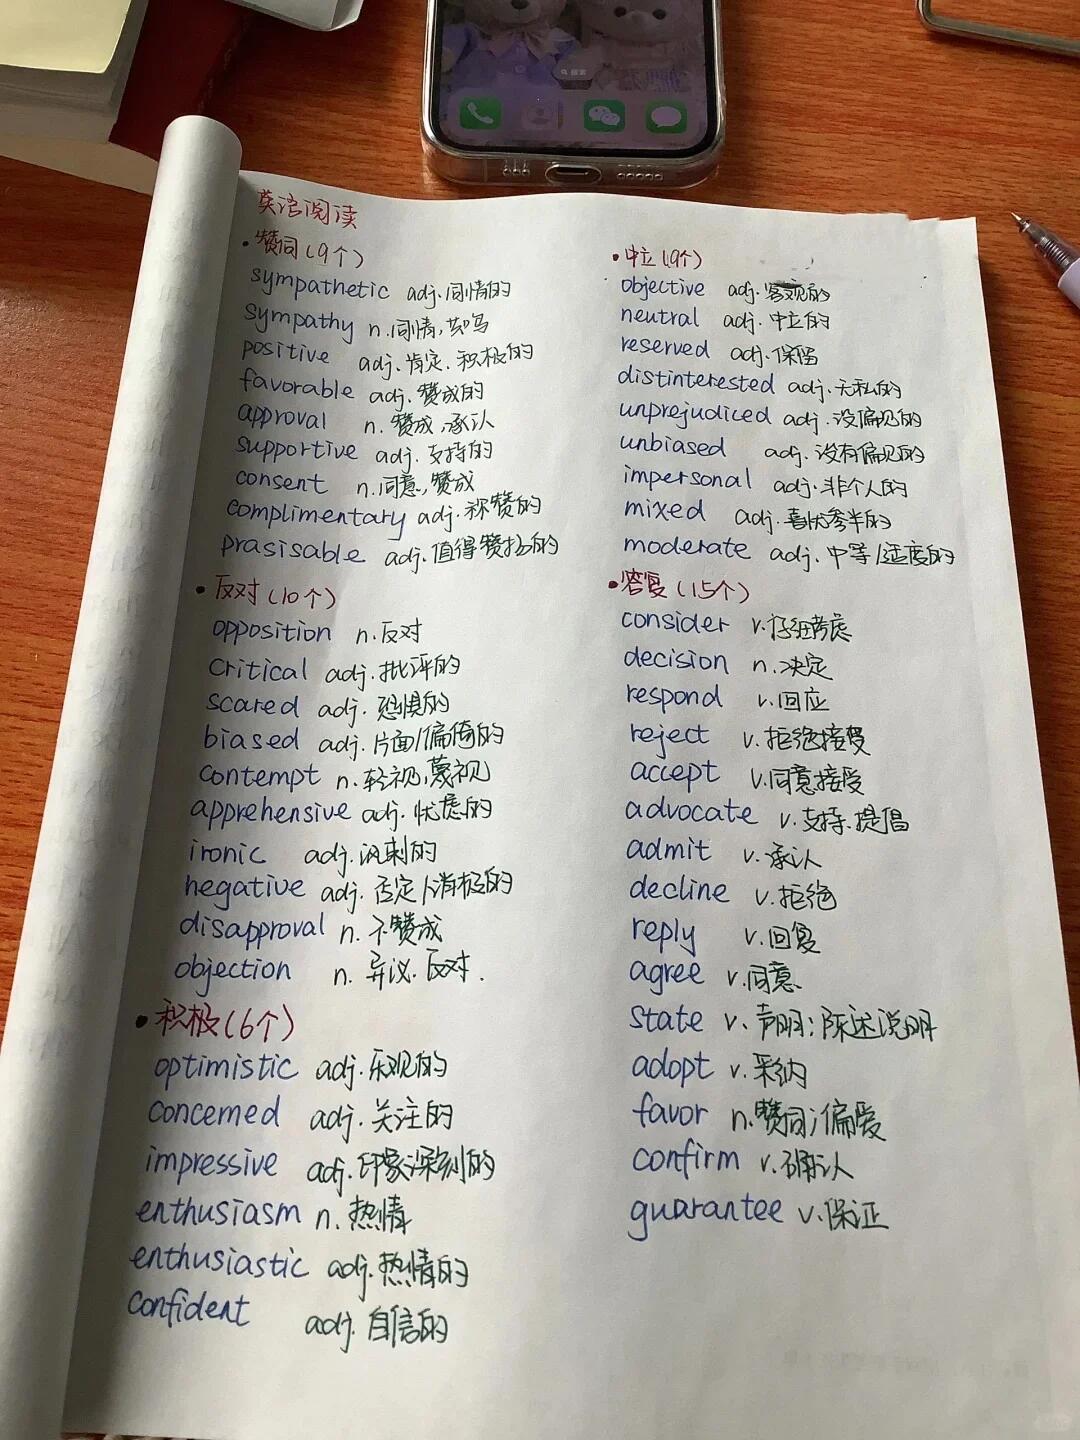 英语阅读
•赞同(9个)
sympathetic adj.同情的
sympathy n.同情,共鸣
positive adj.肯定.积极的
favorable adj.赞成的
approval n.赞成.承认
supportive adj.支持的
consent n.同意,赞成
complimentary adj.称赞的
prasisable adj.值得赞扬的
•反对(10个)
opposition n.反对
critical adj.批评的
scared adj.恐惧的
biased adj.片面/偏倚的
contempt n.轻视,蔑视
apprehensive adj.忧虑的
ironic adj.讽刺的
negative adj.否定/消极的
disapproval n.不赞成
objection n.异议.反对.
•积极(6个)
optimistic adj.乐观的
concerned adj.关注的
impressive adj.印象深刻的
enthusiasm n.热情
enthusiastic adj.热情的
confident adj.自信的
•中立(9个)
objective adj.客观的
neutral adj.中立的
reserved adj.保留
distinterested adj.无私的
unprejudiced adj.没偏见的
unbiased adj.没有偏见的
impersonal adj.非个人的
mixed adj.喜忧参半的
moderate adj.中等/适度的
•答复(15个)
consider v.仔细考虑
decision n.决定
respond v.回应
reject v.拒绝接受
accept v.同意接受
advocate v.支持.提倡
admit v.承认
decline v.拒绝
reply v.回复
agree v.同意
state v.声明;陈述说明
adopt v.采纳
favor n.赞同;偏爱
confirm v.确认
guarantee v.保证